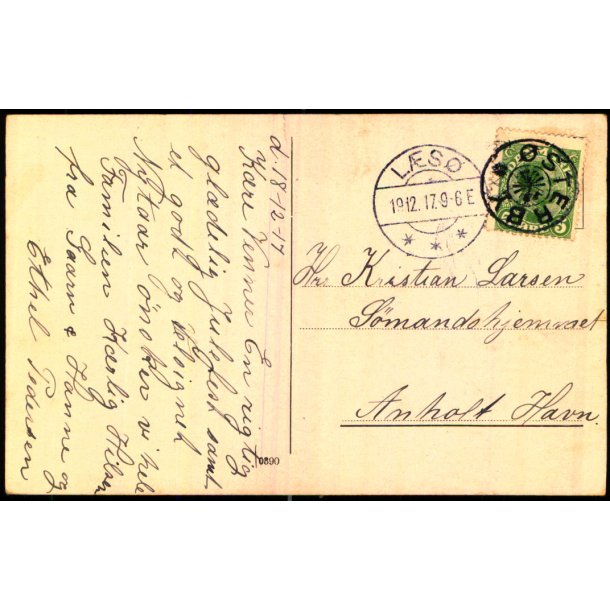 d. 18-12-17
Kære Venner En rigtig
glædelig Julefest samt
et godt og velsignet
Nytaar ønsker vi hele
Familien Kærlig Hilsen
fra Hanne og
Ethel Pedersen
LÆSØ
19.12.17.9-6 E
ØSTERBY
Hr. Kristian Larsen
Sømandshjemmet
Anholt Havn.
0390